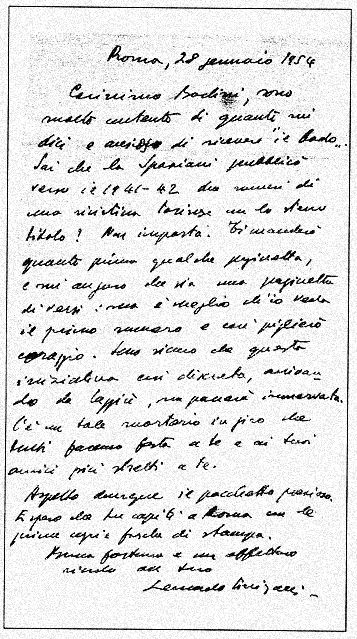 Roma, 28 gennaio 1954
Carissimo Bodini, sono
molto contento di quanto mi
dici e ansioso di ricevere "il Dado".
Sai che la Spaziani pubblicò
verso il 1941-42 due numeri di
una rivistina torinese con lo stesso
titolo? Non importa. Ti manderò
quanto prima qualche paginetta,
e mi auguro che sia una paginetta
di versi: ma è meglio ch'io veda
il primo numero e così piglierò
coraggio. Sono sicuro che questa
iniziativa così discreta, arrivan-
do da laggiù, non passerà inosservata.
C'è un tale mortorio in giro che
tutti faranno festa a te e ai tuoi
amici più stretti a te.
Aspetto dunque il pacchetto prezioso.
E spero che tu capiti a Roma con le
prime copie fresche di stampa.
Buona fortuna e un affettuoso
ricordo dal tuo
Leonardo Sinisgalli